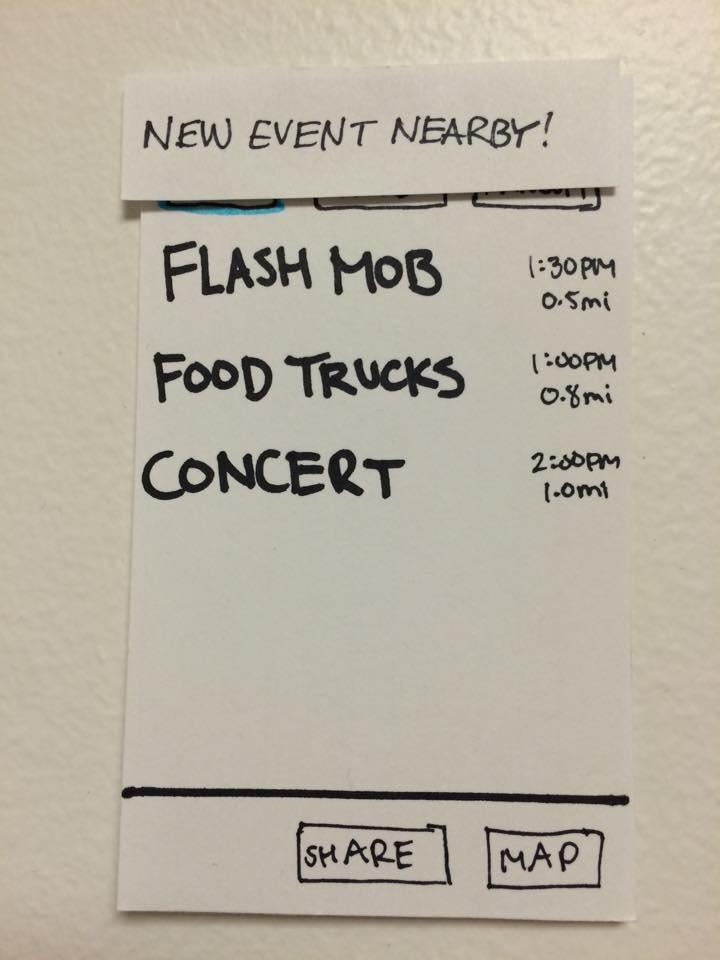 NEW EVENT NEARBY!
FLASH MOB 1:30PM
0.5mi
FOOD TRUCKS 1:00PM
0.8mi
CONCERT 2:00PM
1.0mi
SHARE MAP